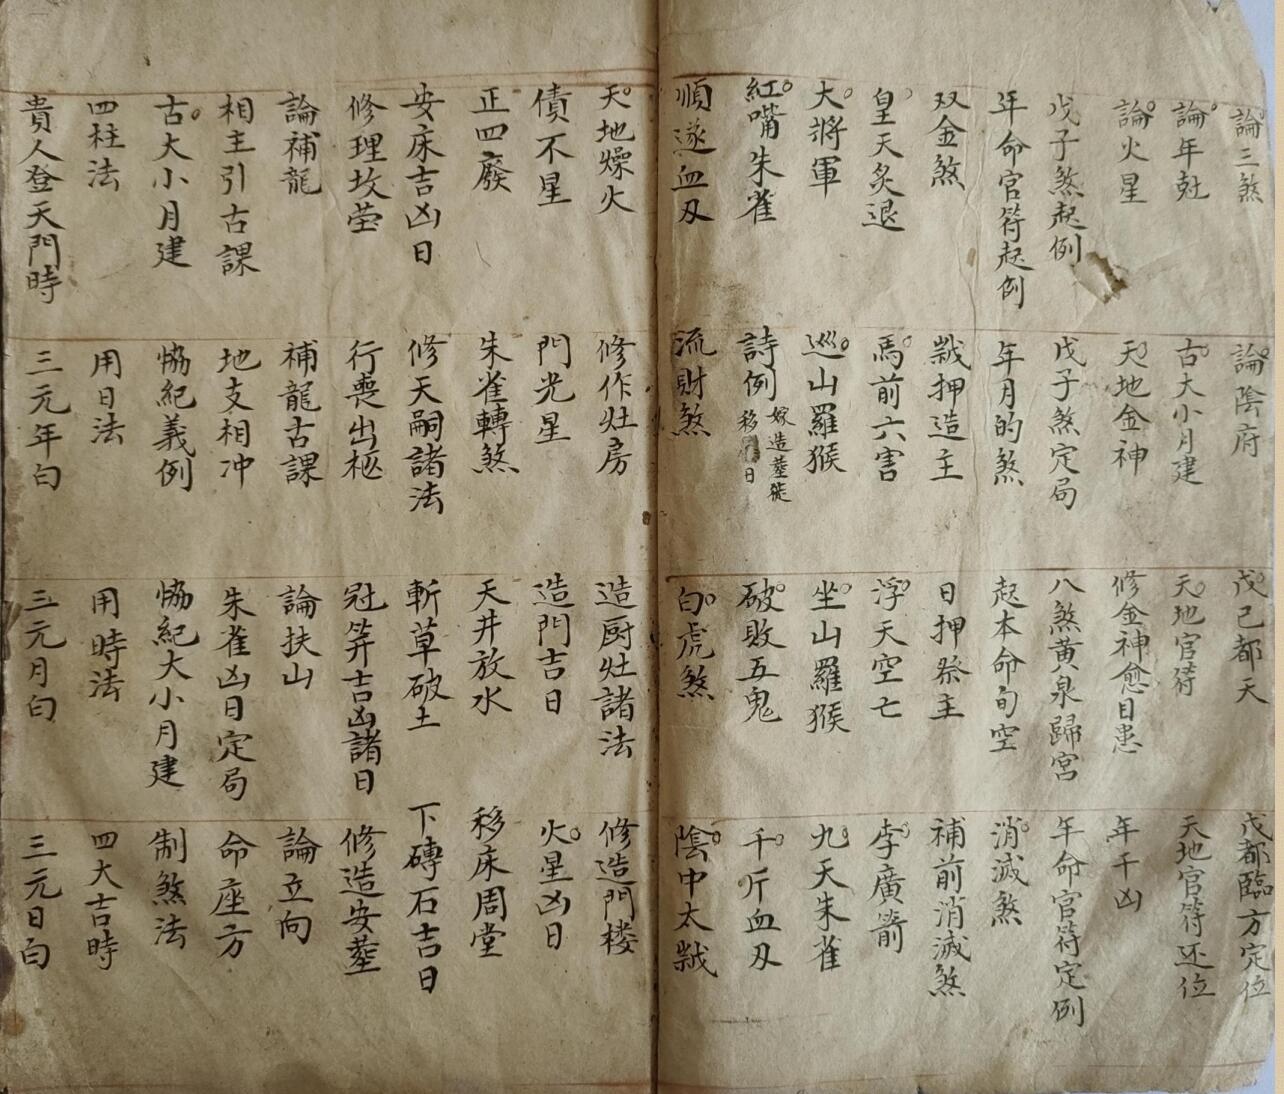 論三煞 論陰府 戊己都天 戊都臨方定位
論年尅 古大小月建 天地官符 天地官符还位
論火星 天地金神 修金神愈目患 年干凶
戊子煞起例 戊子煞定局 八煞黄泉歸宮 年命官符定例
年命官符起例 年月的煞 起本命旬空 消滅煞
双金煞 㦸押造主 日押祭主 補前消滅煞
皇天炙退 馬前六害 浮天空亡 李廣箭
大將軍 巡山羅猴 坐山羅猴 九天朱雀
紅嘴朱雀 詩例 嫁造塟徙移日 破敗五鬼 千斤血刃
順遂血刃 流財煞 白虎煞 陰中太㦸
天地燥火 修作灶房 造厨灶諸法 修造門楼
債不星 門光星 造門吉日 火星凶日
正四廢 朱雀轉煞 天井放水 移床周堂
安床吉凶日 修天嗣諸法 斬草破土 下磚石吉日
修理坟茔 行喪出柩 冠笄吉凶諸日 修造安塟
論補龍 補龍古課 論扶山 論立向
相主引古課 地支相冲 朱雀凶日定局 命座方
古大小月建 恊紀義例 恊紀大小月建 制煞法
四柱法 用日法 用時法 四大吉時
貴人登天門時 三元年白 三元月白 三元日白